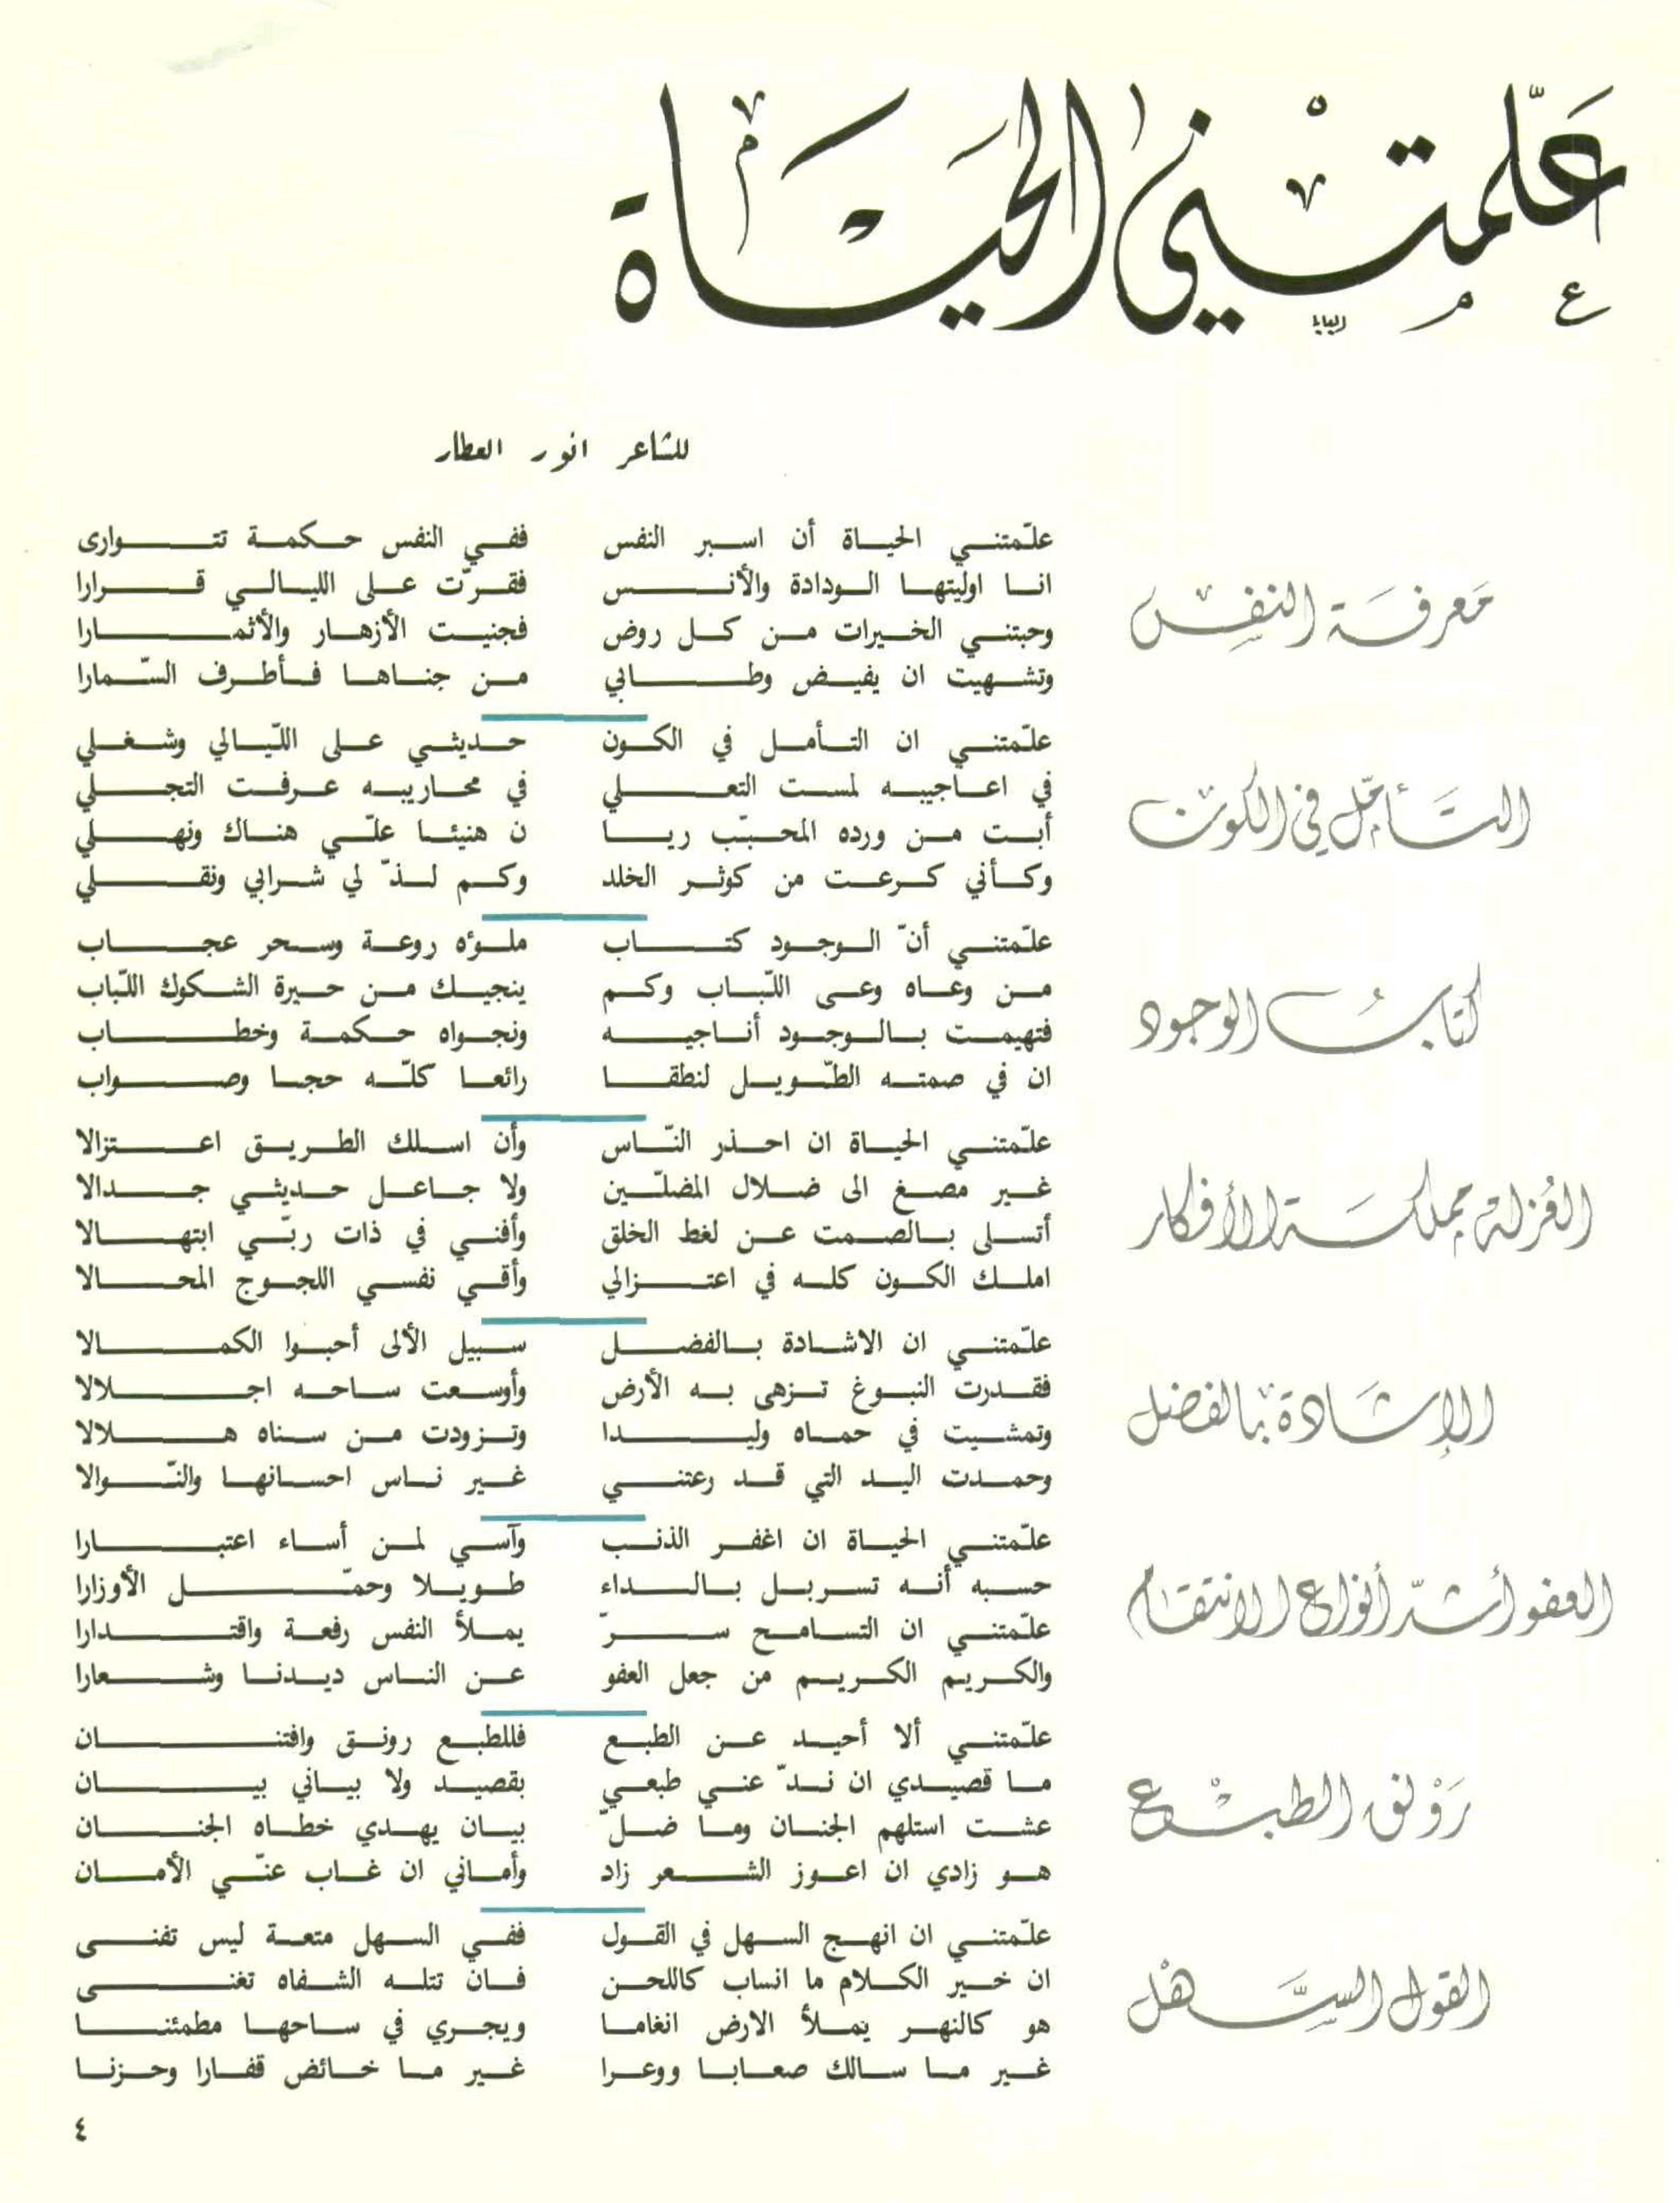 علّمتني الحياة
البابا
للشاعر انور العطار
معرفة النفس
علّمتني الحياة أن اسبر النفس ففي النفس حكمة تتوارى
انا اوليتها الودادة والأنس فقرّت على الليالي قرارا
وحبتني الخيرات من كل روض فجنيت الأزهار والأثمارا
وتشهيت ان يفيض وطابي من جناها فأطرف السّمارا
التأمّل في الكون
علّمتني ان التأمل في الكون حديثي على اللّيالي وشغلي
في اعاجيبه لمست التعلي في محاريبه عرفت التجلي
أبت من ورده المحبّب ريا ن هنيئا علّي هناك ونهلي
وكأني كرعت من كوثر الخلد وكم لذّ لي شرابي ونقلي
كتاب الوجود
علّمتني أنّ الوجود كتاب ملؤه روعة وسحر عجاب
من وعاه وعى اللّباب وكم ينجيك من حيرة الشكوك اللّباب
فتهيمت بالوجود أناجيه ونجواه حكمة وخطاب
ان في صمته الطّويل لنطقا رائعا كلّه حجا وصواب
العُزلة مملكة الأفكار
علّمتني الحياة ان احذر النّاس وأن اسلك الطريق اعتزالا
غير مصغ الى ضلال المضلّين ولا جاعل حديثي جدالا
أتسلى بالصمت عن لغط الخلق وأفني في ذات ربّي ابتهالا
املك الكون كله في اعتزالي وأقي نفسي اللجوج المحالا
الإشادة بالفضل
علّمتني ان الاشادة بالفضل سبيل الألى أحبوا الكمالا
فقدرت النبوغ تزهى به الأرض وأوسعت ساحه اجلالا
وتمشيت في حماه وليدا وتزودت من سناه هلالا
وحمدت اليد التي قد رعتني غير ناس احسانها والنّوالا
العفو أشدّ أنواع الانتقام
علّمتني الحياة ان اغفر الذنب وآسي لمن أساء اعتبارا
حسبه أنه تسربل بالداء طويلا وحمّل الأوزارا
علّمتني ان التسامح سرّ يملأ النفس رفعة واقتدارا
والكريم الكريم من جعل العفو عن الناس ديدنا وشعارا
رَوْنق الطبْع
علّمتني ألا أحيد عن الطبع فللطبع رونق وافتنان
ما قصيدي ان ندّ عني طبعي بقصيد ولا بياني بيان
عشت استلهم الجنان وما ضلّ بيان يهدي خطاه الجنان
هو زادي ان اعوز الشعر زاد وأماني ان غاب عنّي الأمان
القول السَّهْل
علّمتني ان انهج السهل في القول ففي السهل متعة ليس تفنى
ان خير الكلام ما انساب كاللحن فان تتله الشفاه تغنى
هو كالنهر يملأ الارض انغاما ويجري في ساحها مطمئنا
غير ما سالك صعابا ووعرا غير ما خائض قفارا وحزنا
٤